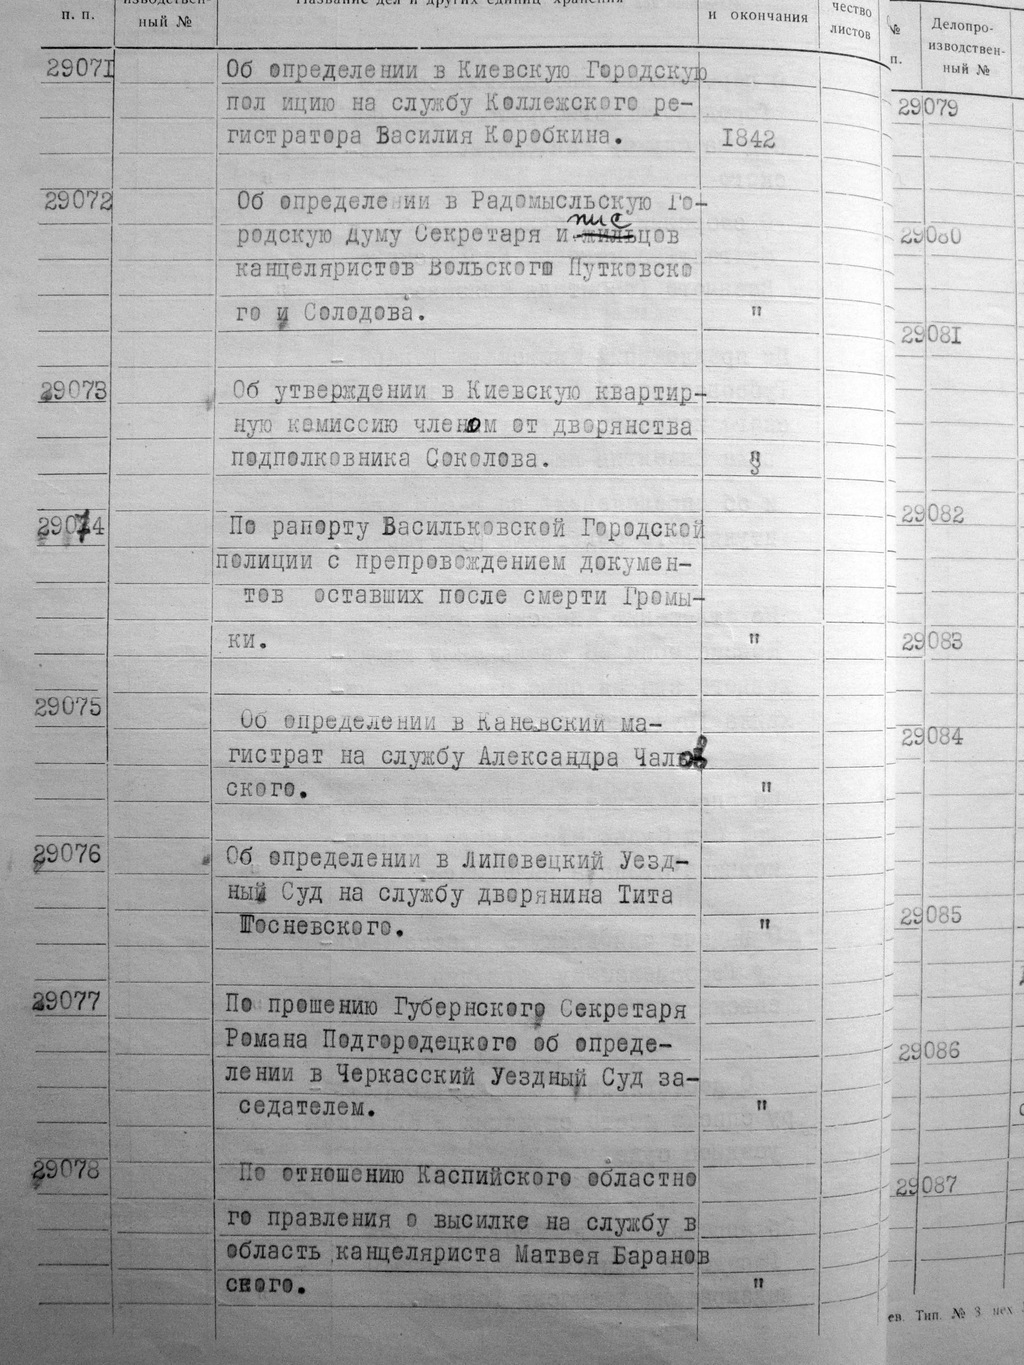 п. п.
изводствен-
ный №
Название дел и других единиц хранения
и окончания
чество
листов
29071
Об определении в Киевскую Городскую
пол ицию на службу Коллежского ре-
гистратора Василия Коробкина.
1842
29072
Об определении в Радомысльскую Го-
пис
родскую Думу Секретаря и жильцов
канцеляристов Вольского Путковско
го и Солодова.
"
29073
Об утверждении в Киевскую квартир-
ную комиссию членом от дворянства
подполковника Соколова.
"
29074
По рапорту Васильковской Городской
полиции с препровождением докумен-
тов оставших после смерти Громы-
ки.
"
29075
Об определении в Каневский ма-
гистрат на службу Александра
ского.
"
29076
Об определении в Липовецкий Уезд-
ный Суд на службу дворянина Тита
"
29077
По прошению Губернского Секретаря
Романа Подгородецкого об опреде-
лении в Черкасский Уездный Суд за-
седателем.
"
29078
По отношению Каспийского областно
го правления о высилке на службу в
область канцеляриста Матвея Баранов
ского.
"
№
п.
Делопро-
изводствен-
ный №
29079
29080
29081
29082
29083
29084
29085
29086
29087
ев. Тип. № 3